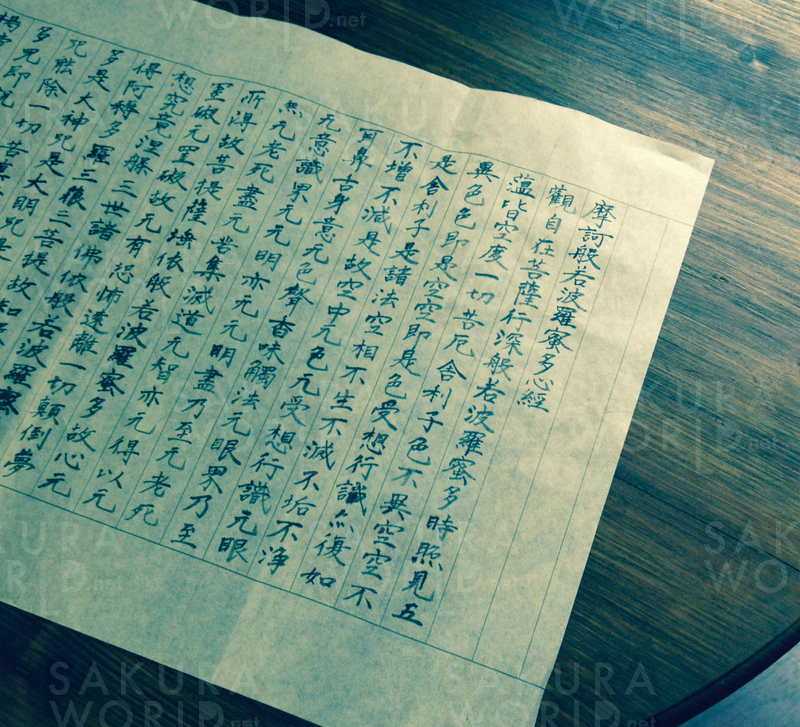 摩訶般若波羅蜜多心經
觀自在菩薩行深般若波羅蜜多時照見五
蘊皆空度一切苦厄舍利子色不異空空不
異色色即是空空即是色受想行識亦復如
是舍利子是諸法空相不生不滅不垢不淨
不增不減是故空中无色无受想行識无眼
耳鼻舌身意无色聲香味觸法无眼界乃至
无意識界无无明亦无无明盡乃至无老死
亦无老死盡无苦集滅道无智亦无得以无
所得故菩提薩埵依般若波羅蜜多故心无
罣礙无罣礙故无有恐怖遠離一切顛倒夢
想究竟涅槃三世諸佛依般若波羅蜜
得阿耨多羅三藐三菩提故知
多是大神咒是大明咒是
咒能除一切苦
多咒即說
揭帝
SAKURA WORLD.net